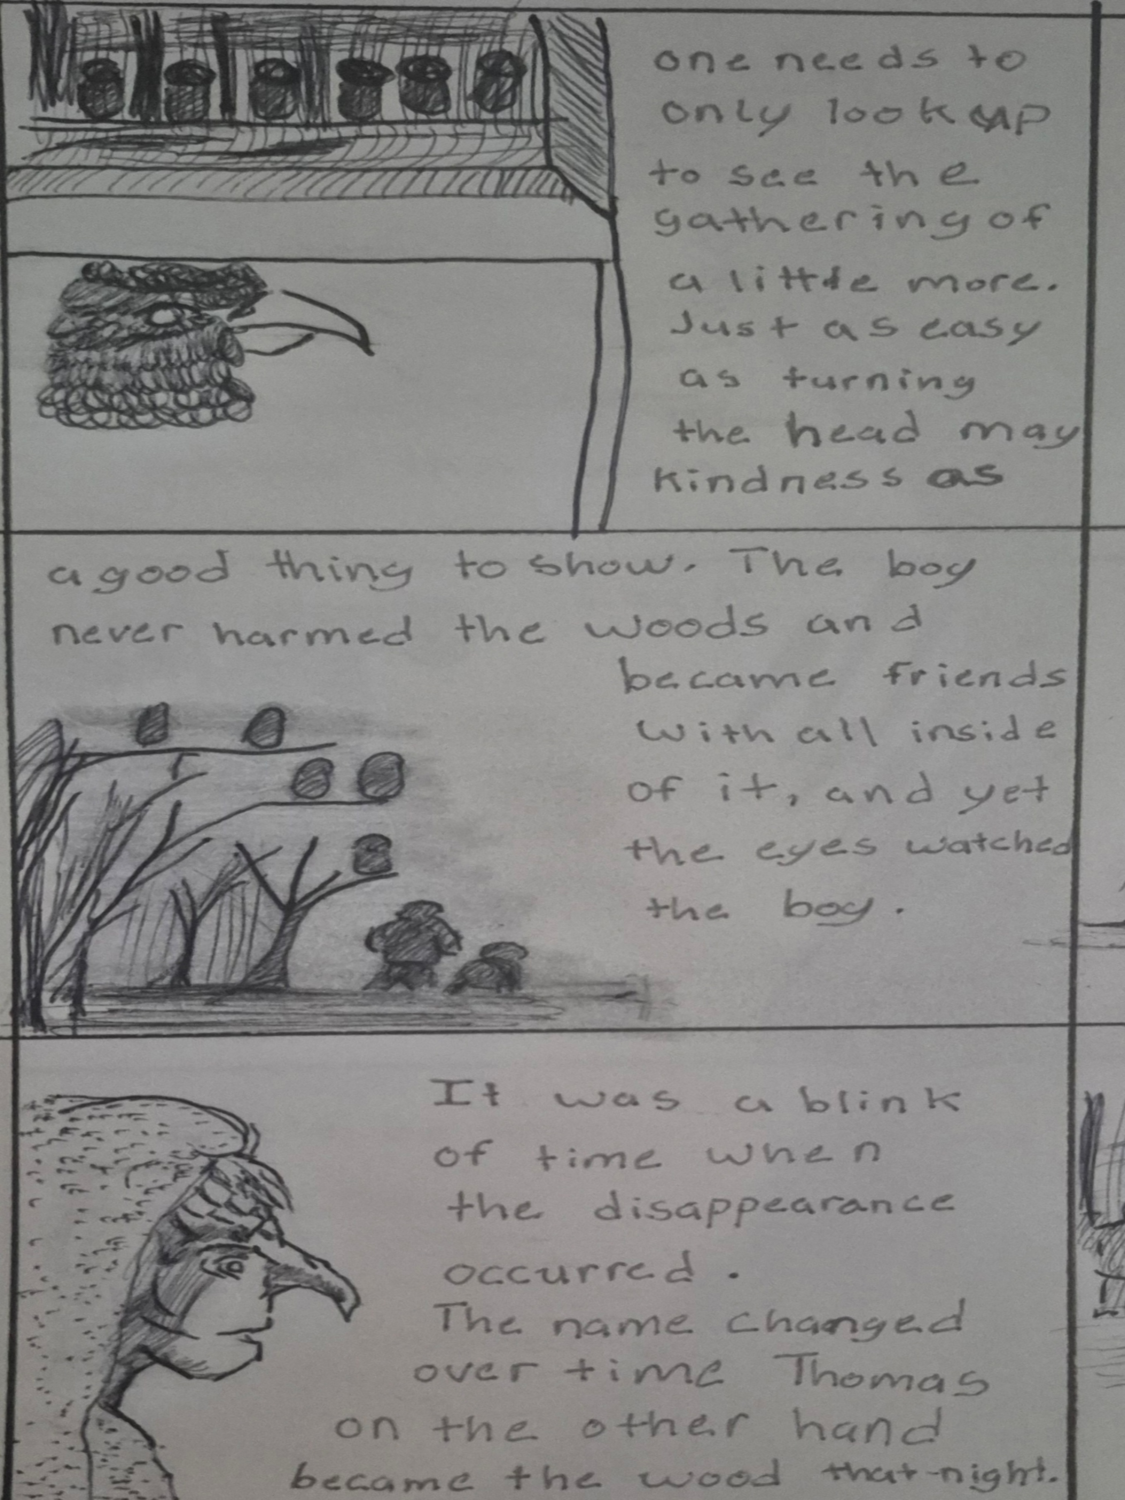 one needs to
only look up
to see the
gathering of
a little more.
Just as easy
as turning
the head may
kindness as
a good thing to show. The boy
never harmed the woods and
became friends
with all inside
of it, and yet
the eyes watched
the boy.
It was a blink
of time when
the disappearance
occurred.
The name changed
over time Thomas
on the other hand
became the wood that night.